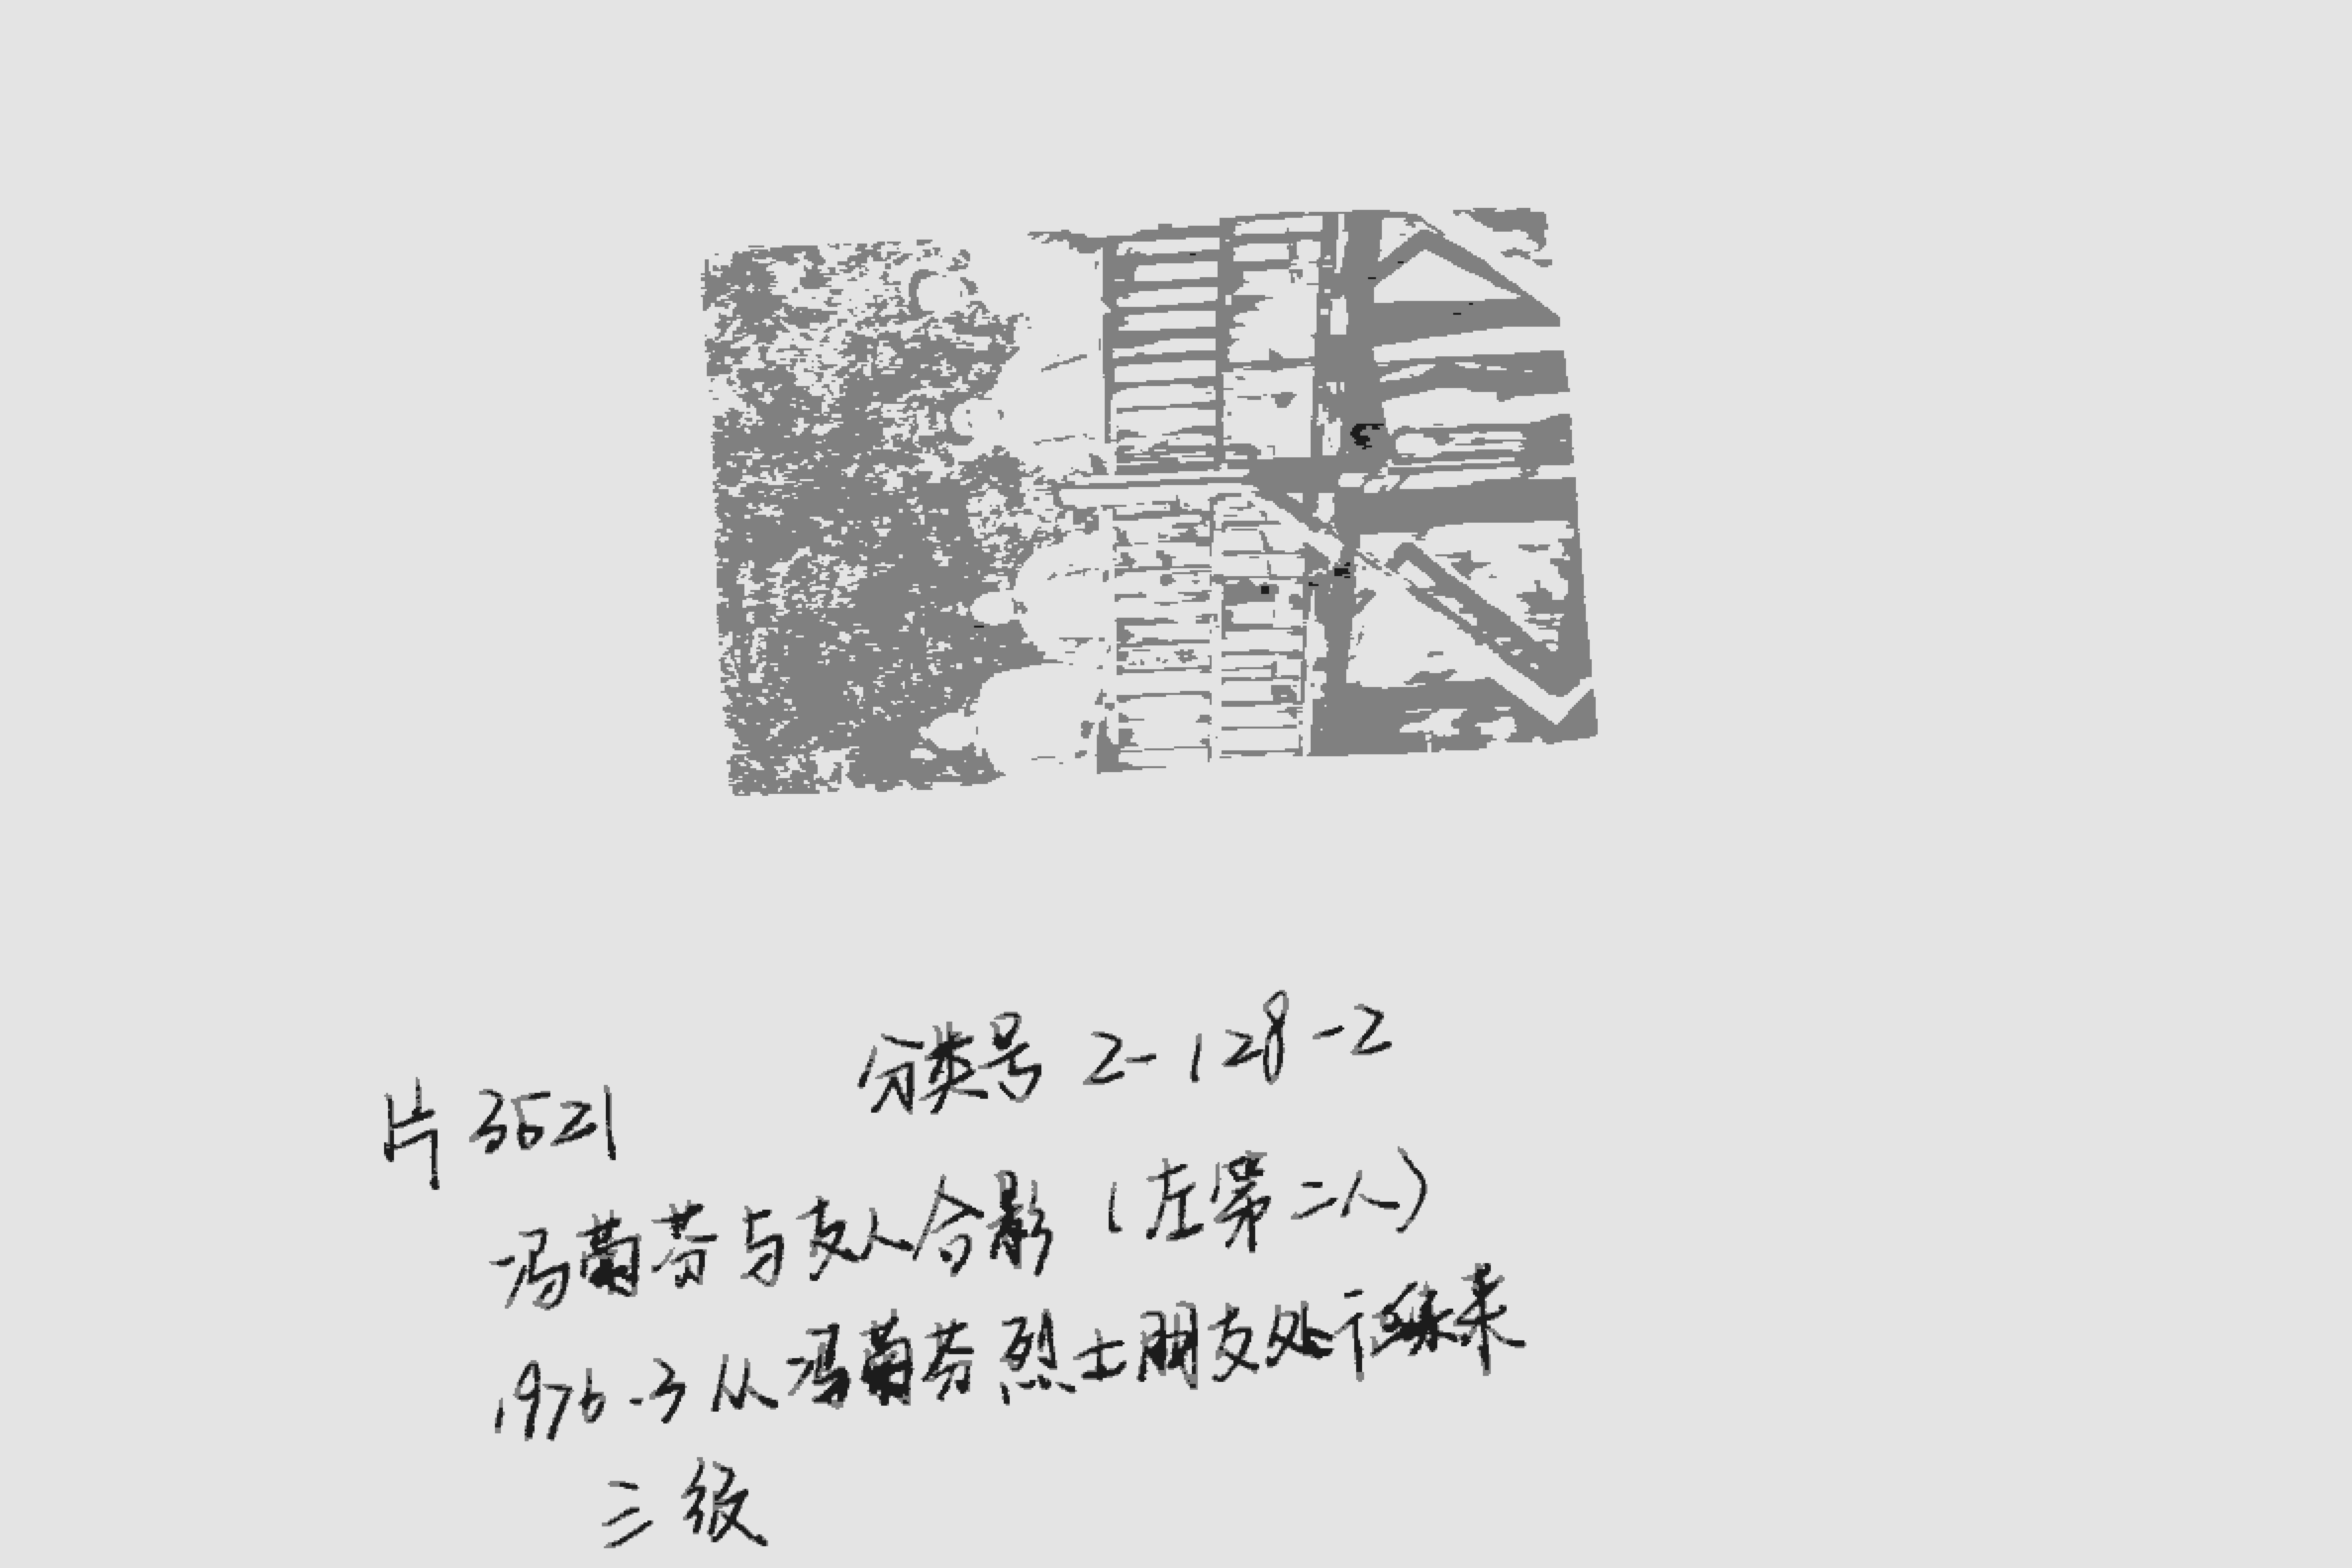 分类号 2-128-2
片 3521
冯菊芬与友人合影（左第二人）
1976.3 从冯菊芬烈士朋友处征集来
三级